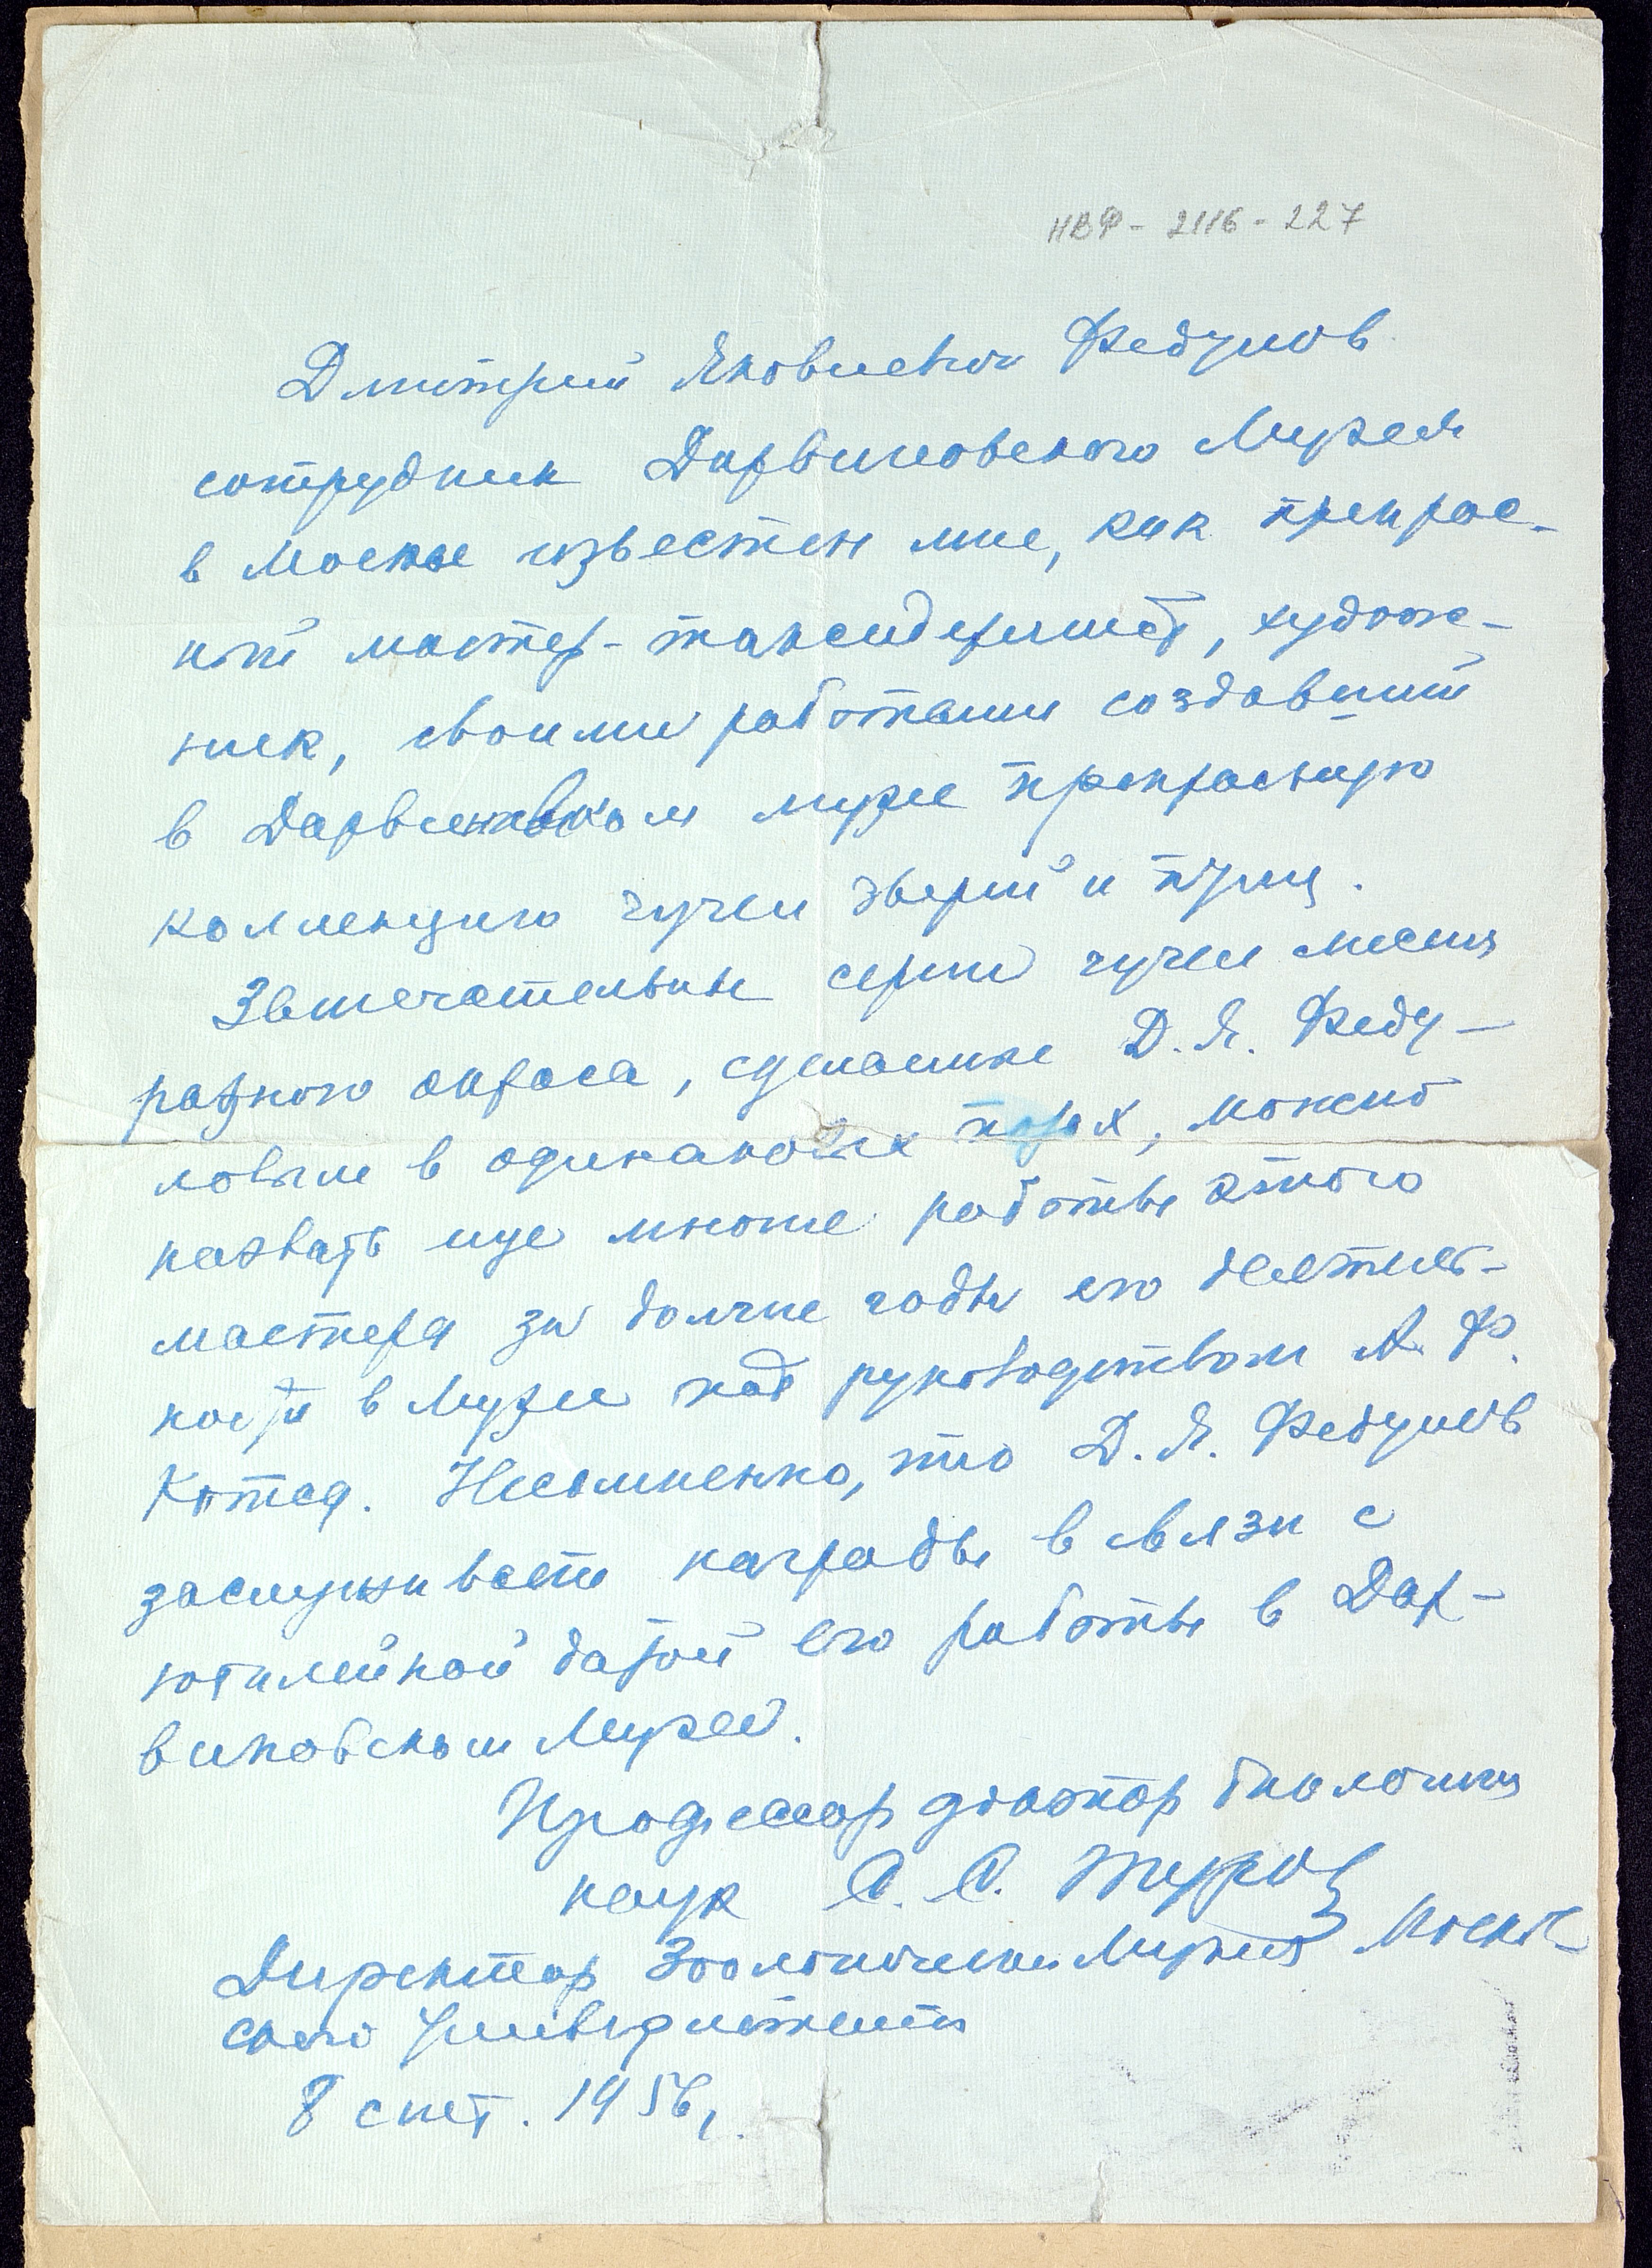 НВФ - 2116 - 227
Дмитрий Яковлевич Федулов
сотрудник Дарвиновского Музея
в Москве известен мне, как прекрас-
ный мастер-таксидермист, худож-
ник, своими работами создавший
в Дарвиновском музее прекрасную
коллекцию чучел зверей и птиц.
Замечательные серии чучел лисиц
разного окраса, сделанные Д. Я. Феду-
ловым в одинаковых позах, можно
назвать еще многие работы этого
мастера за долгие годы его деятель-
ности в Музее под руководством А. Ф.
Котса. Несомненно, что Д. Я. Федулов
заслуживает награды в связи с
юбилейной датой его работы в Дар-
виновском Музее.
Профессор доктор биологич
наук С. С. Туров
Директор Зоологическ Музея Москов
ского Университета
8 сент. 1956 г.